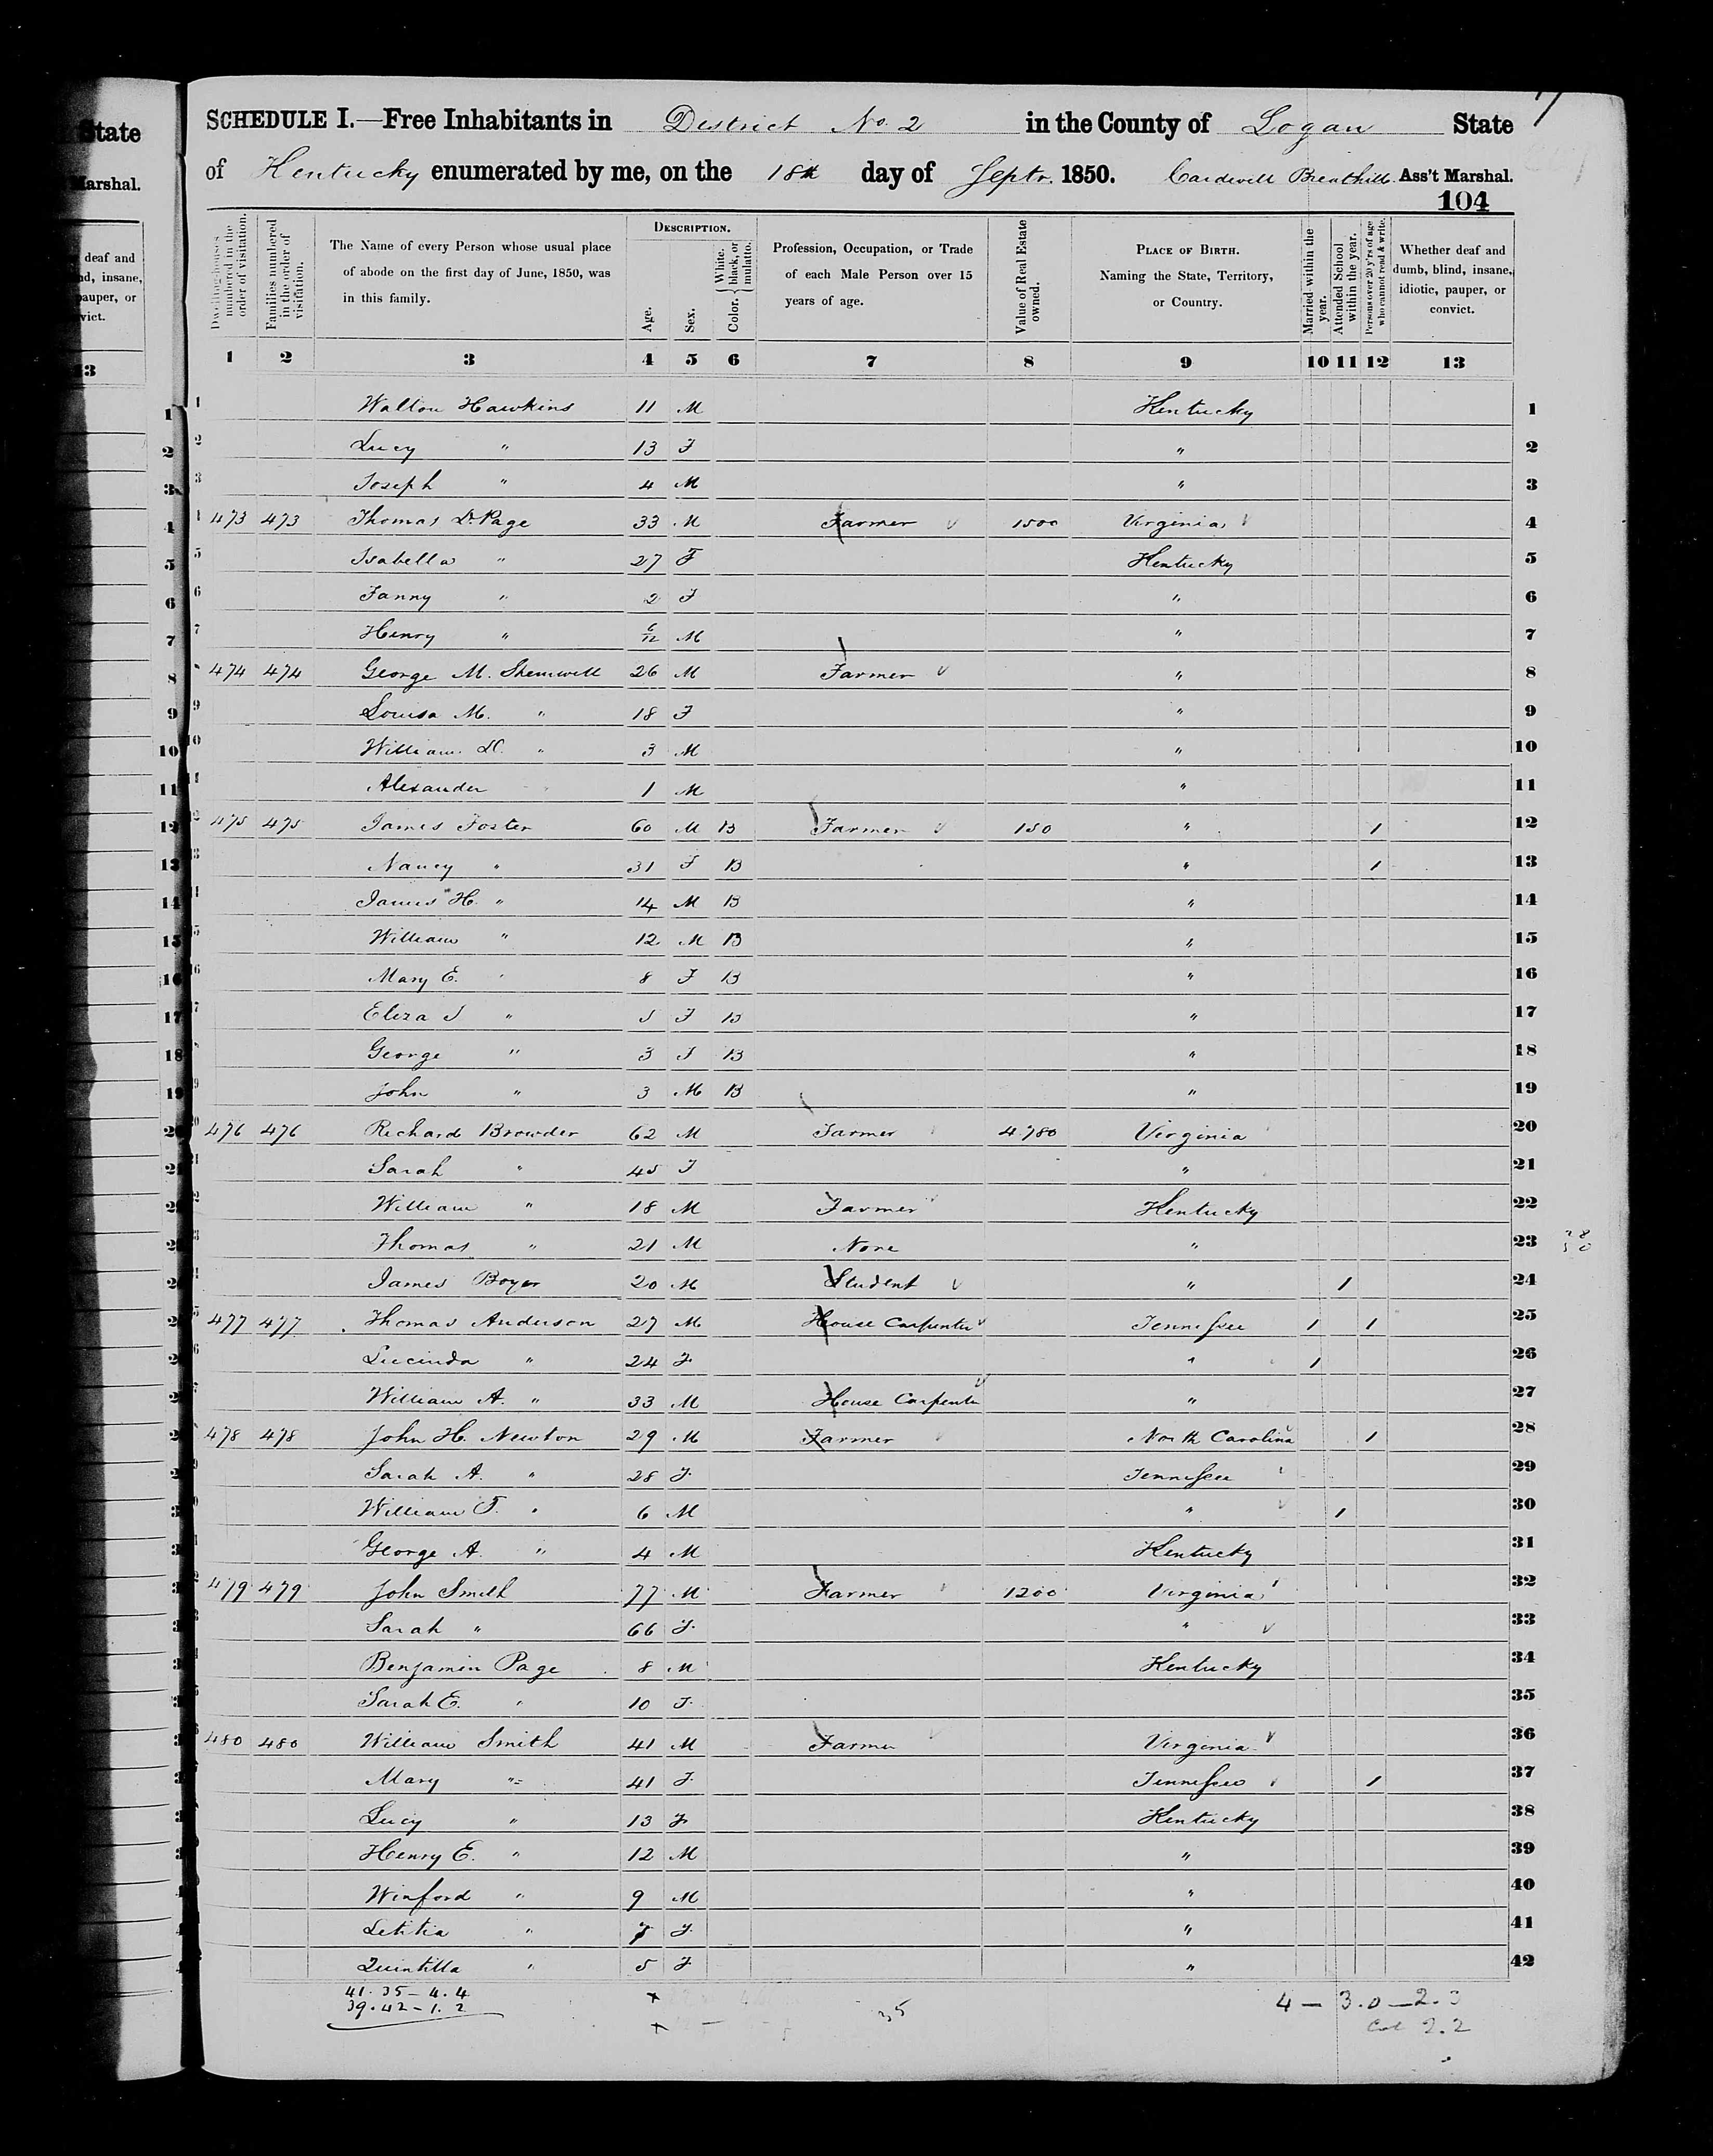 State
Marshal.
deaf and
nd, insane,
pauper, or
vict.
13
SCHEDULE I.—Free Inhabitants in District No. 2 in the County of Logan State
of Kentucky enumerated by me, on the 18th day of Septr. 1850. Cardwell Breathitt Ass't Marshal.
104
Dwelling-houses numbered in the order of visitation.
Families numbered in the order of visitation.
The Name of every Person whose usual place of abode on the first day of June, 1850, was in this family.
DESCRIPTION.
Age.
Sex.
Color. { White, black, or mulatto.
Profession, Occupation, or Trade of each Male Person over 15 years of age.
Value of Real Estate owned.
PLACE OF BIRTH. Naming the State, Territory, or Country.
Married within the year.
Attended School within the year.
Persons over 20 y'rs of age who cannot read & write.
Whether deaf and dumb, blind, insane, idiotic, pauper, or convict.
1 2 3 4 5 6 7 8 9 10 11 12 13
1 Walton Hawkins 11 M Kentucky 1
2 Lucy " 13 F " 2
3 Joseph " 4 M " 3
473 473 Thomas D. Page 33 M Farmer 1500 Virginia 4
5 Isabella " 27 F Kentucky 5
6 Fanny " 2 F " 6
7 Henry " 6/12 M " 7
474 474 George M. Shemwell 26 M Farmer " 8
9 Louisa M. " 18 F " 9
10 William D. " 3 M " 10
11 Alexander " 1 M " 11
12 475 475 James Foster 60 M B Farmer 150 " 1 12
13 Nancy " 31 F B " 1 13
14 James H. " 14 M B " 14
15 William " 12 M B " 15
16 Mary E. " 8 F B " 16
17 Eliza J " 5 F B " 17
18 George " 3 F B " 18
19 John " 3 M B " 19
476 476 Richard Browder 62 M Farmer 4780 Virginia 20
Sarah " 45 F " 21
William " 18 M Farmer Kentucky 22
Thomas " 21 M None " 23
James Boyer 20 M Student " 1 24
477 477 Thomas Anderson 27 M House Carpenter Tennessee 1 1 25
Lucinda " 24 F " 1 26
William A. " 33 M House Carpenter " 27
478 478 John H. Newton 29 M Farmer North Carolina 1 28
Sarah A. " 28 F Tennessee 29
William T. " 6 M " 1 30
George A. " 4 M Kentucky 31
479 479 John Smith 77 M Farmer 1200 Virginia 32
Sarah " 66 F " 33
Benjamin Page 8 M Kentucky 34
Sarah E. " 10 F 35
480 480 William Smith 41 M Farmer Virginia 36
Mary " 41 F Tennessee 1 37
Lucy " 13 F Kentucky 38
Henry E. " 12 M " 39
Winford " 9 M " 40
Letitia " 7 F " 41
Quintilla " 5 F " 42
41.35—4.4
39.42—1.2
35
4 — 3.0—2.3
Col 2.2